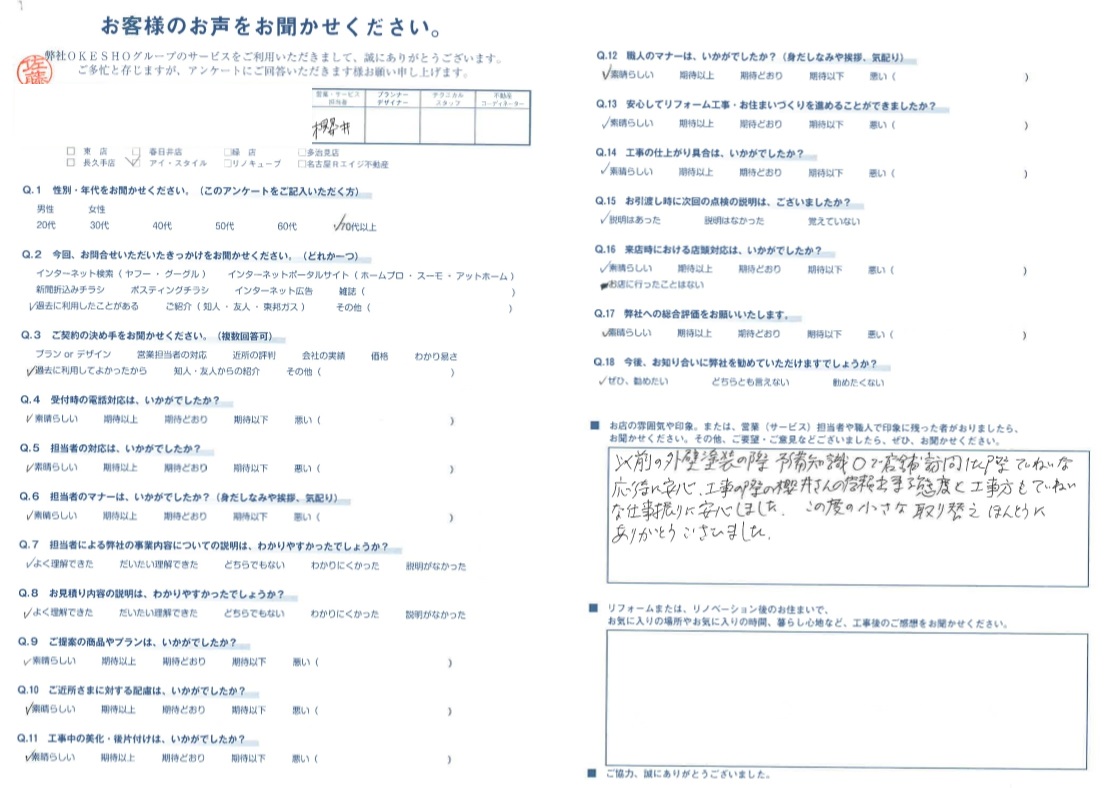 お客様のお声をお聞かせください。
佐藤
弊社OKESHOグループのサービスをご利用いただきまして、誠にありがとうございます。
ご多忙と存じますが、アンケートにご回答いただきます様お願い申し上げます。
営業・サービス担当者 プランナーデザイナー テクニカルスタッフ 不動産コーディネーター
櫻井
□ 東 店 □ 春日井店 □緑 店 □多治見店
□ 長久手店 ✓ アイ・スタイル □リノキューブ □名古屋Rエイジ不動産
Q.1 性別・年代をお聞かせください。(このアンケートをご記入いただく方)
男性 女性
20代 30代 40代 50代 60代 ✓70代以上
Q.2 今回、お問合せいただいたきっかけをお聞かせください。(どれか一つ)
インターネット検索(ヤフー・グーグル) インターネットポータルサイト(ホームプロ・スーモ・アットホーム)
新聞折込みチラシ ポスティングチラシ インターネット広告 雑誌( )
✓過去に利用したことがある ご紹介(知人・友人・東邦ガス) その他( )
Q.3 ご契約の決め手をお聞かせください。(複数回答可)
プラン or デザイン 営業担当者の対応 近所の評判 会社の実績 価格 わかり易さ
✓過去に利用してよかったから 知人・友人からの紹介 その他( )
Q.4 受付時の電話対応は、いかがでしたか?
✓素晴らしい 期待以上 期待どおり 期待以下 悪い( )
Q.5 担当者の対応は、いかがでしたか?
✓素晴らしい 期待以上 期待どおり 期待以下 悪い( )
Q.6 担当者のマナーは、いかがでしたか?(身だしなみや挨拶、気配り)
✓素晴らしい 期待以上 期待どおり 期待以下 悪い( )
Q.7 担当者による弊社の事業内容についての説明は、わかりやすかったでしょうか?
✓よく理解できた だいたい理解できた どちらでもない わかりにくかった 説明がなかった
Q.8 お見積り内容の説明は、わかりやすかったでしょうか?
✓よく理解できた だいたい理解できた どちらでもない わかりにくかった 説明がなかった
Q.9 ご提案の商品やプランは、いかがでしたか?
✓素晴らしい 期待以上 期待どおり 期待以下 悪い( )
Q.10 ご近所さまに対する配慮は、いかがでしたか?
✓素晴らしい 期待以上 期待どおり 期待以下 悪い( )
Q.11 工事中の美化・後片付けは、いかがでしたか?
✓素晴らしい 期待以上 期待どおり 期待以下 悪い( )
Q.12 職人のマナーは、いかがでしたか?(身だしなみや挨拶、気配り)
✓素晴らしい 期待以上 期待どおり 期待以下 悪い( )
Q.13 安心してリフォーム工事・お住まいづくりを進めることができましたか?
✓素晴らしい 期待以上 期待どおり 期待以下 悪い( )
Q.14 工事の仕上がり具合は、いかがでしたか?
✓素晴らしい 期待以上 期待どおり 期待以下 悪い( )
Q.15 お引渡し時に次回の点検の説明は、ございましたか?
✓説明はあった 説明はなかった 覚えていない
Q.16 来店時における店頭対応は、いかがでしたか?
✓素晴らしい 期待以上 期待どおり 期待以下 悪い( )
お店に行ったことはない
Q.17 弊社への総合評価をお願いいたします。
✓素晴らしい 期待以上 期待どおり 期待以下 悪い( )
Q.18 今後、お知り合いに弊社を勧めていただけますでしょうか?
✓ぜひ、勧めたい どちらとも言えない 勧めたくない
■ お店の雰囲気や印象。または、営業(サービス)担当者や職人で印象に残った者がおりましたら、
お聞かせください。その他、ご要望・ご意見などございましたら、ぜひ、お聞かせください。
以前の外壁塗装の際 予備知識0で店舗訪問した際ていねいな
応待に安心、工事の際の櫻井さんの信頼出来る態度と工事方もていねい
な仕事振りに安心しました。この度の小さな取り替え ほんとうに
ありがとうございました。
■ リフォームまたは、リノベーション後のお住まいで、
お気に入りの場所やお気に入りの時間、暮らし心地など、工事後のご感想をお聞かせください。
■ ご協力、誠にありがとうございました。